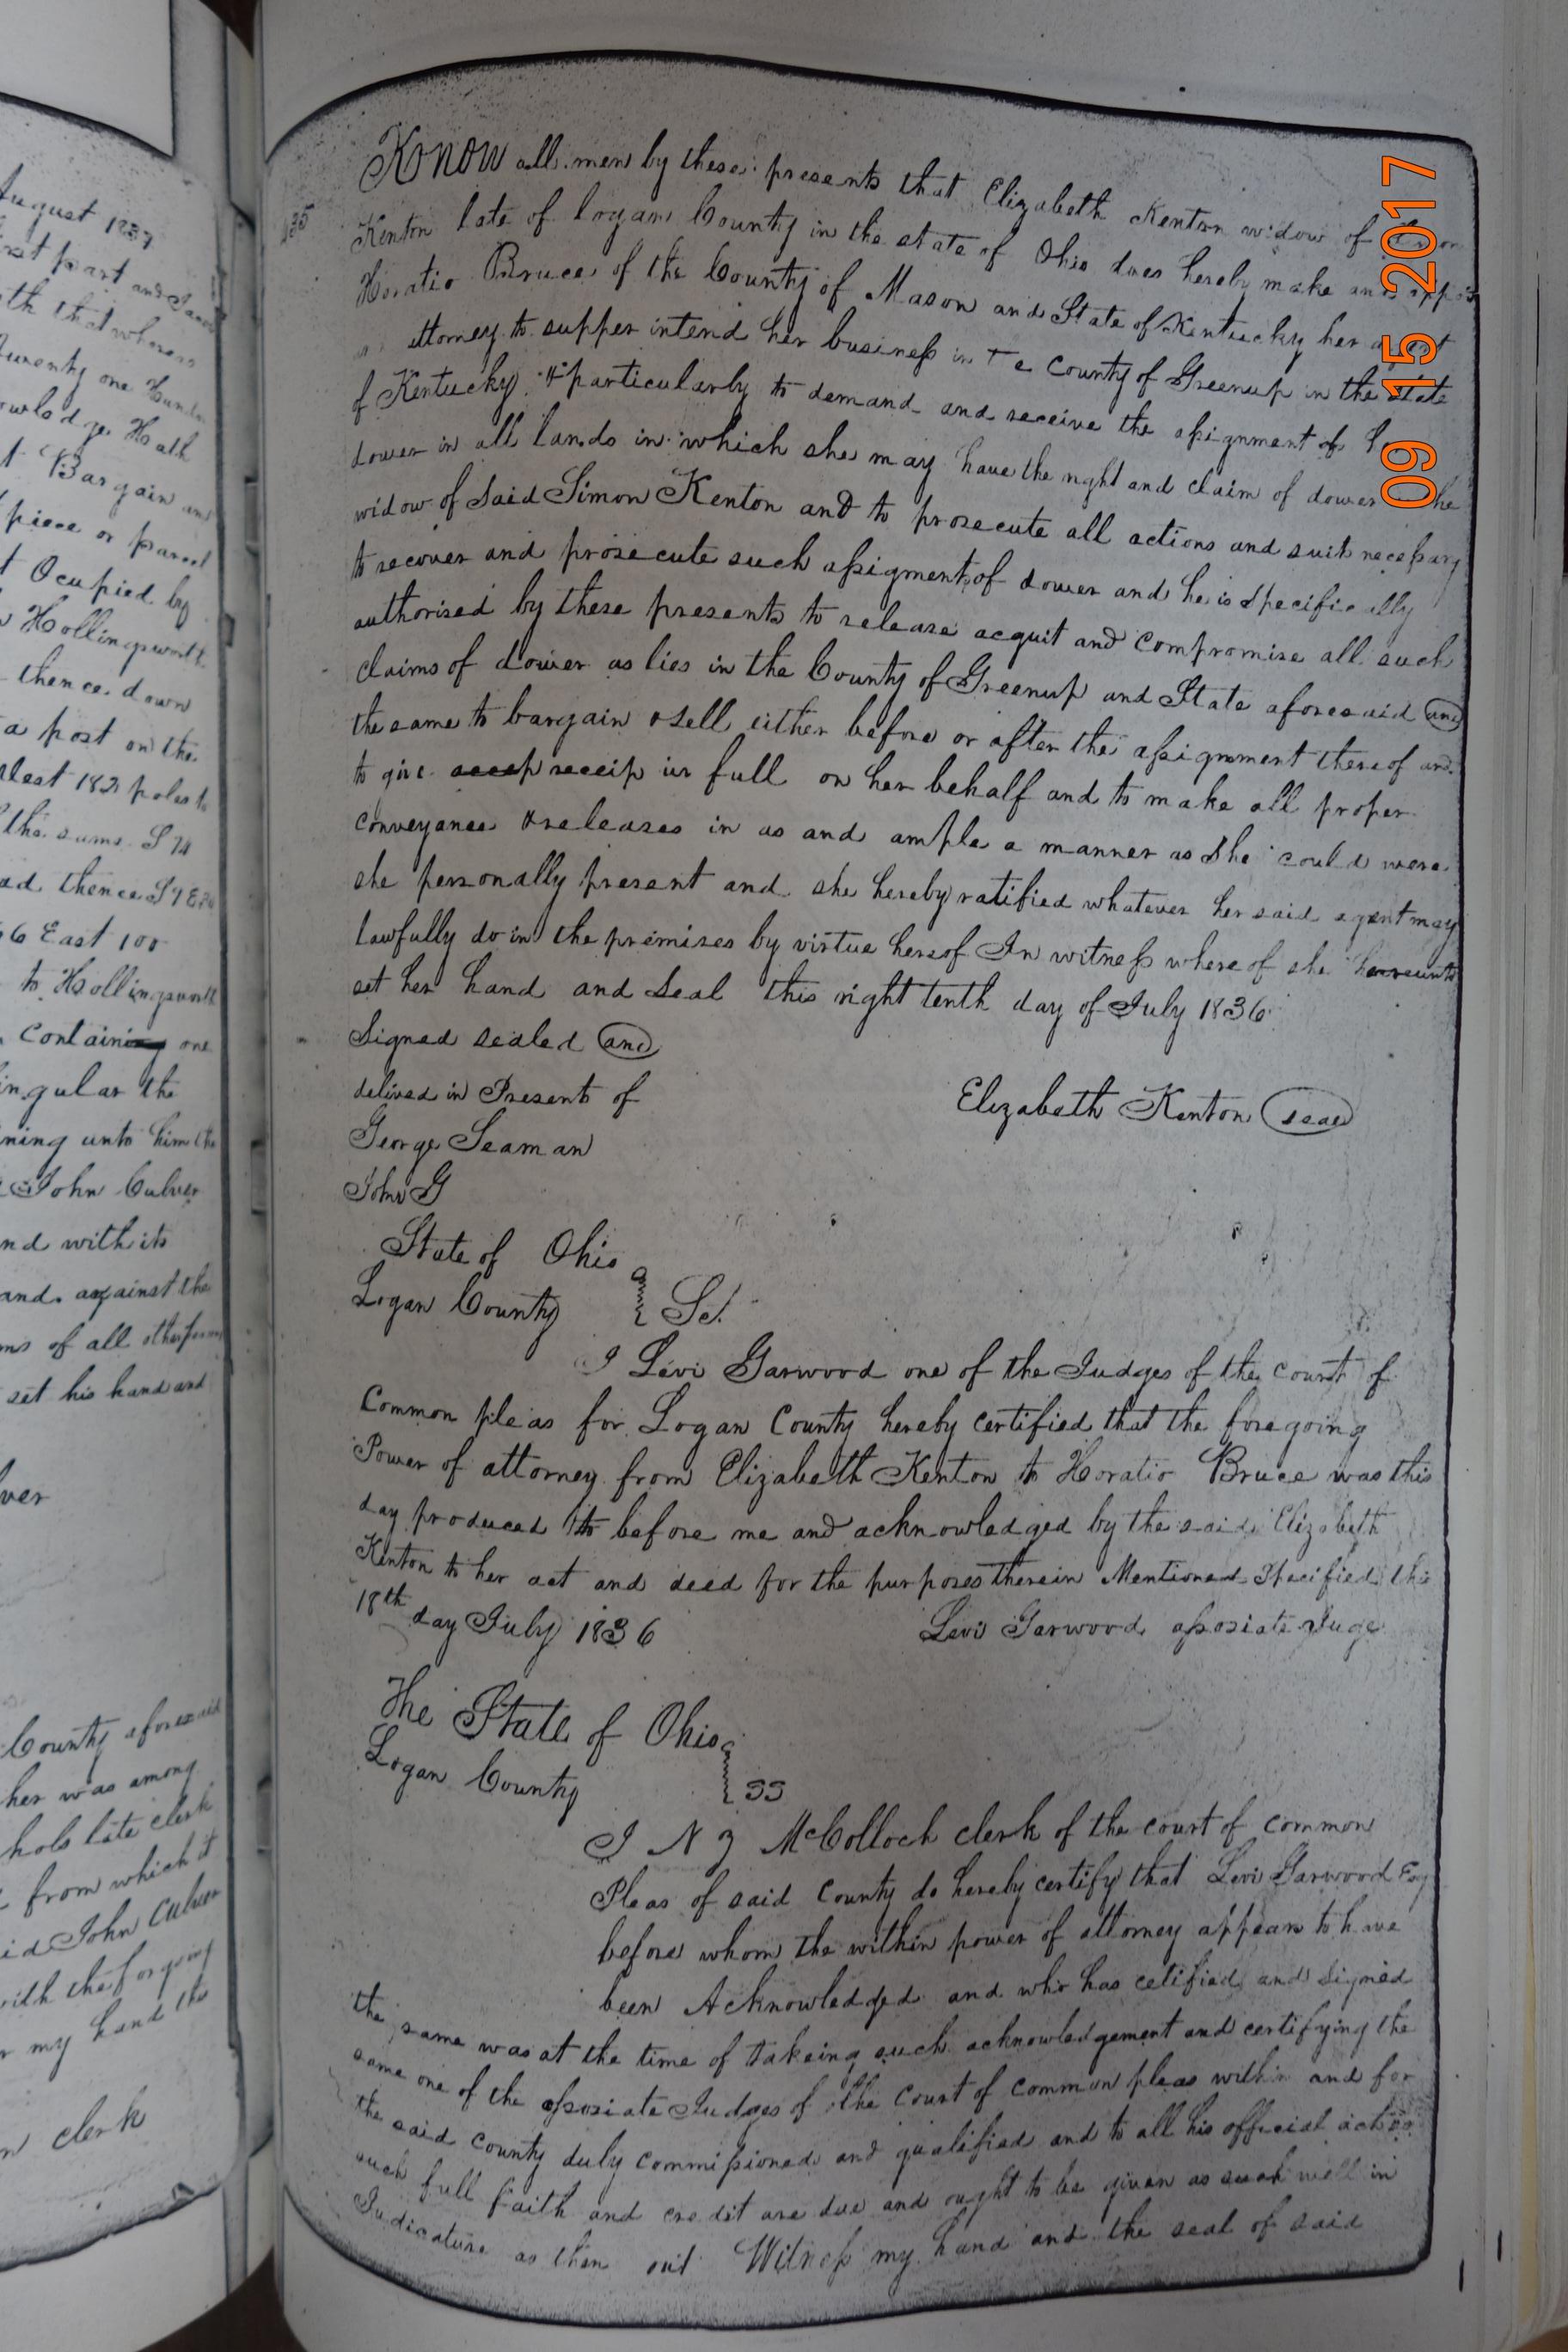 August 1837
rst part and
th that whereas
Twenty one
owledge Hath
t Bargain an
piece or parcel
t Ocupied by
Hollingsworth
thence down
a post on the
West 182 poles to
the same S 74
ad thence
6 East 100
to Hollingsworth
Containing one
ingular the
ning unto him the
John Culver
nd with its
and against the
ms of all other
set his hand and
ver
County aforesaid
her was among
hols late clerk
from which it
id John Culver
with the forgoing
r my hand the
clerk
Konow all men by these presents that Elizabeth Kenton widow of
Kenton late of Logan County in the state of Ohio does hereby make and
Horatio Bruce of the County of Mason and State of Kentucky her agent
attorney to supper intend her business in County of Greenup in the State
of Kentucky & particularly to demand and receive the assignment of
dower in all lands in which she may have the right and claim of dower
widow of Said Simon Kenton and to prosecute all actions and suit necessary
to recover and prosecute such assigment of dower and he is specifically
authorised by these presents to release acquit and compromise all such
claims of dower as lies in the County of Greenup and State aforesaid and
the same to bargain & sell either before or after the assignment thereof and
to give receip in full on her behalf and to make all proper
conveyance & releases in as and ample a manner as she could were
she personally present and she hereby ratified whatever her said agent may
lawfully do in the premises by virtue hereof In witness where of she hereunto
set her hand and Seal this eight tenth day of July 1836
Signed sealed and
delived in Present of
Elizabeth Kenton seal
George Seaman
John G
State of Ohio
Logan County } Sct
I Levi Garwood one of the Judges of the court of
Common pleas for Logan County hereby certified that the foregoing
Power of attorney from Elizabeth Kenton to Horatio Bruce was this
day produced to before me and acknowledged by the said Elizabeth
Kenton to her act and deed for the purposes therein Mentioned Specified this
18th day July 1836
Levi Garwood assosiate Juge
The State of Ohio
Logan County } SS
I N Z McColloch clerk of the court of common
Pleas of said County do hereby certify that Levi Garwood Esq
before whom the within power of attorney appears to have
been Acknowledged and who has cetified and signed
the same was at the time of takeing such acknowledgement and certifying the
same one of the assosiate Judges of the Court of common pleas within and for
the said county duly commissioned and qualified and to all his official acts as
such full faith and credit are due and ought to be given as such well in
Judicature as then out Witness my hand and the seal of said
09 15 2017